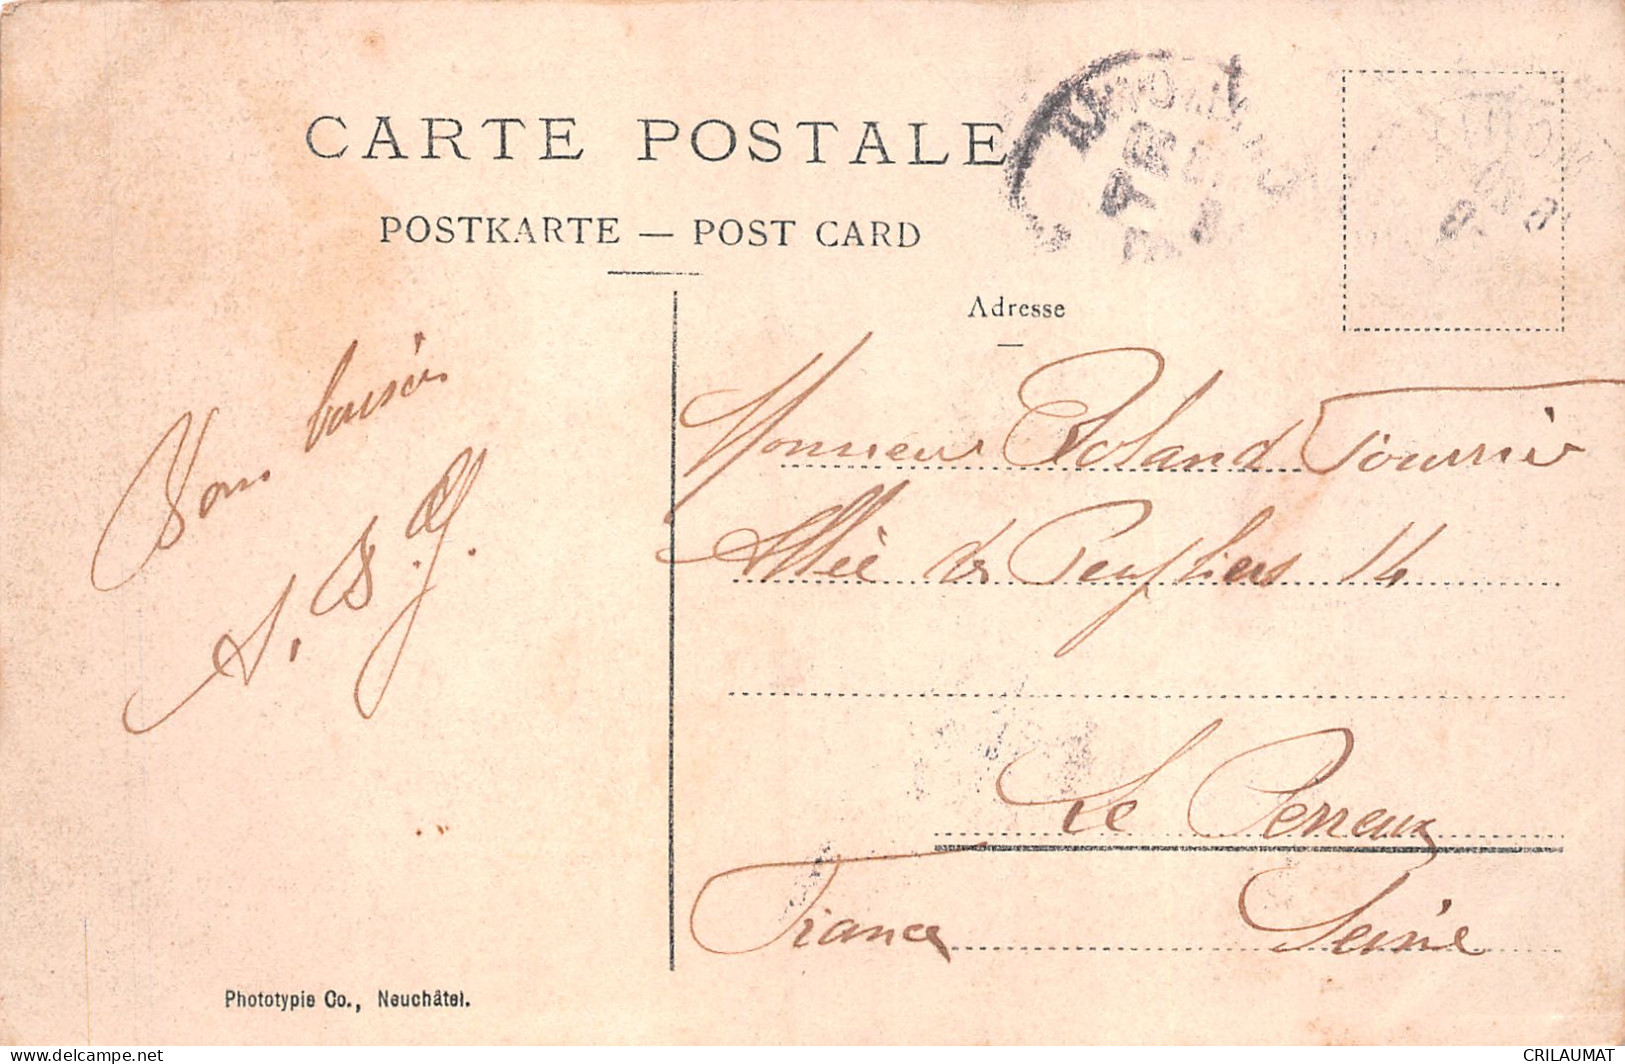 CARTE POSTALE
POSTKARTE — POST CARD
Adresse
Bons baisers
Monsieur Roland Fournier
Allée des Peupliers 14
Le Perreux
France Seine
Phototypie Co., Neuchâtel.
delcampe.net
CRILAUMAT